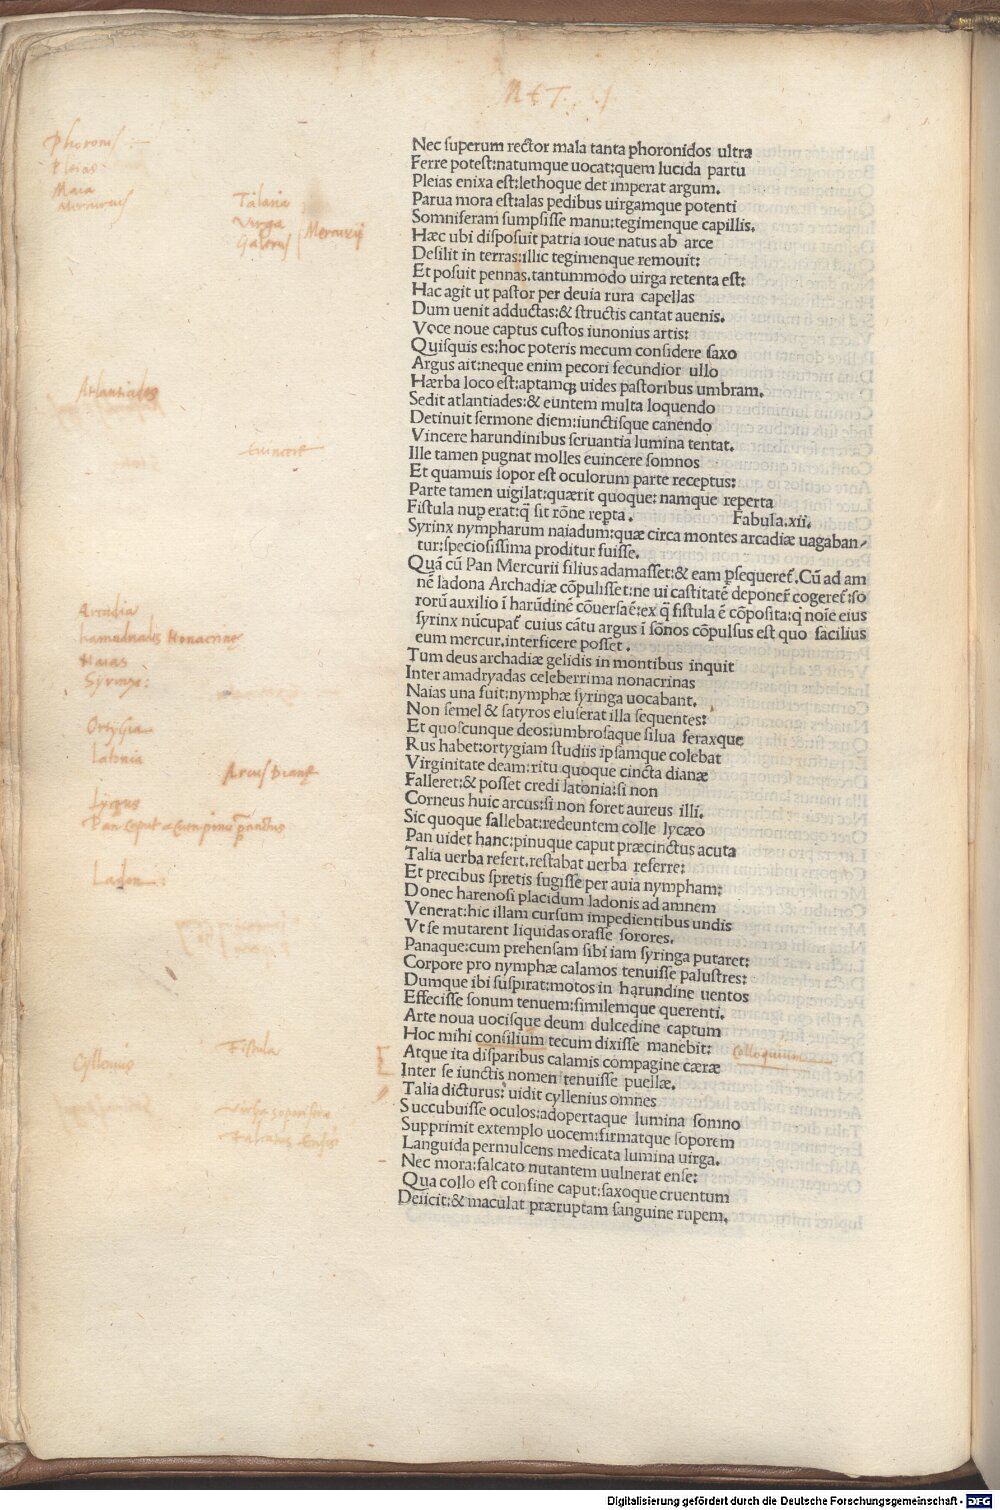 Met. .1
Phoronis
Pleias
Maia
Mercurius
Talaria
Virga
Galerus
Mercurij
Nec superum rector mala tanta phoronidos ultra
Ferre potest:natumque uocat:quem lucida partu
Pleias enixa est:lethoque det imperat argum.
Parua mora est:alas pedibus uirgamque potenti
Somniferam sumpsisse manu:tegimenque capillis.
Hæc ubi disposuit patria ioue natus ab arce
Desilit in terras:illic tegimenque remouit:
Et posuit pennas.tantummodo uirga retenta est:
Hac agit ut pastor per deuia rura capellas
Dum uenit adductas:& structis cantat auenis.
Voce noue captus custos iunonius artis:
Quisquis es:hoc poteris mecum considere saxo
Argus ait:neque enim pecori secundior ullo
Hærba loco est:aptamqꝫ uides pastoribus umbram.
Atlantiades
Sedit atlantiades:& euntem multa loquendo
Detinuit sermone diem:iunctisque canendo
Vincere harundinibus seruantia lumina tentat.
euincere
Ille tamen pugnat molles euincere somnos
Et quamuis sopor est oculorum parte receptus:
Parte tamen uigilat:quærit quoque: namque reperta
Fistula nup erat:q̃ sit rõne repta. Fabula.xii.
Syrinx nympharum naiadum:quæ circa montes arcadiæ uagaban-
tur:speciosissima proditur fuisse.
Quã cũ Pan Mercurii filius adamasset:& eam ꝑsequeret̃.Cũ ad am
nẽ ladona Archadiæ cõpulisset:ne ui castitatẽ deponer̃ cogeret̃:so
rorũ auxilio ĩ harũdinẽ cõuersa ẽ:ex q̃ fistula ẽ cõposita:q̃ noĩe eius
syrinx nũcupat̃ cuius cãtu argus ĩ sõnos cõpulsus est quo facilius
eum mercur.interficere posset.
Arcadia
hamadriadis Nonacrinę
Naias
Syringa:
Tum deus archadiæ gelidis in montibus inquit
Inter amadryadas celeberrima nonacrinas
Naias una fuit:nymphæ syringa uocabant.
Non semel & satyros eluserat illa sequentes:
Et quoscunque deos:umbrosaque silua feraxque
Ortygia
Rus habet:ortygiam studiis ipsamque colebat
Latonia
Arcus Dianę
Virginitate deam:ritu quoque cincta dianæ
Falleret:& posset credi latonia:si non
Corneus huic arcus:si non foret aureus illi.
Lycęus
Sic quoque fallebat:redeuntem colle lycæo
Pan caput acuta pinu præcinctus
Pan uidet hanc:pinuque caput præcinctus acuta
Talia uerba refert.restabat uerba referre:
Et precibus spretis fugisse per auia nympham:
Ladon:
Donec harenosi placidum ladonis ad amnem
Venerat:hic illam cursum impedientibus undis
Vt se mutarent liquidas orasse sorores.
Panaque:cum prehensam sibi iam syringa putaret:
Corpore pro nymphæ calamos tenuisse palustres:
Dumque ibi suspirat:motos in harundine uentos
Effecisse sonum tenuem:similemque querenti.
Arte noua uocisque deum dulcedine captum
Hoc mihi consilium tecum dixisse manebit: Colloquium
Fistula
Atque ita disparibus calamis compagine cæræ
Cyllenius
Inter se iunctis nomen tenuisse puellæ.
Talia dicturus: uidit cyllenius omnes
Succubuisse oculos:adopertaque lumina somno
Supprimit extemplo uocem:firmatque soporem
Virga soporifera
Languida permulcens medicata lumina uirga.
Falcatus Ensis
Nec mora:falcato nutantem uulnerat ense:
Qua collo est confine caput:saxoque cruentum
Deiicit:& maculat præruptam sanguine rupem.
Digitalisierung gefördert durch die Deutsche Forschungsgemeinschaft - DFG